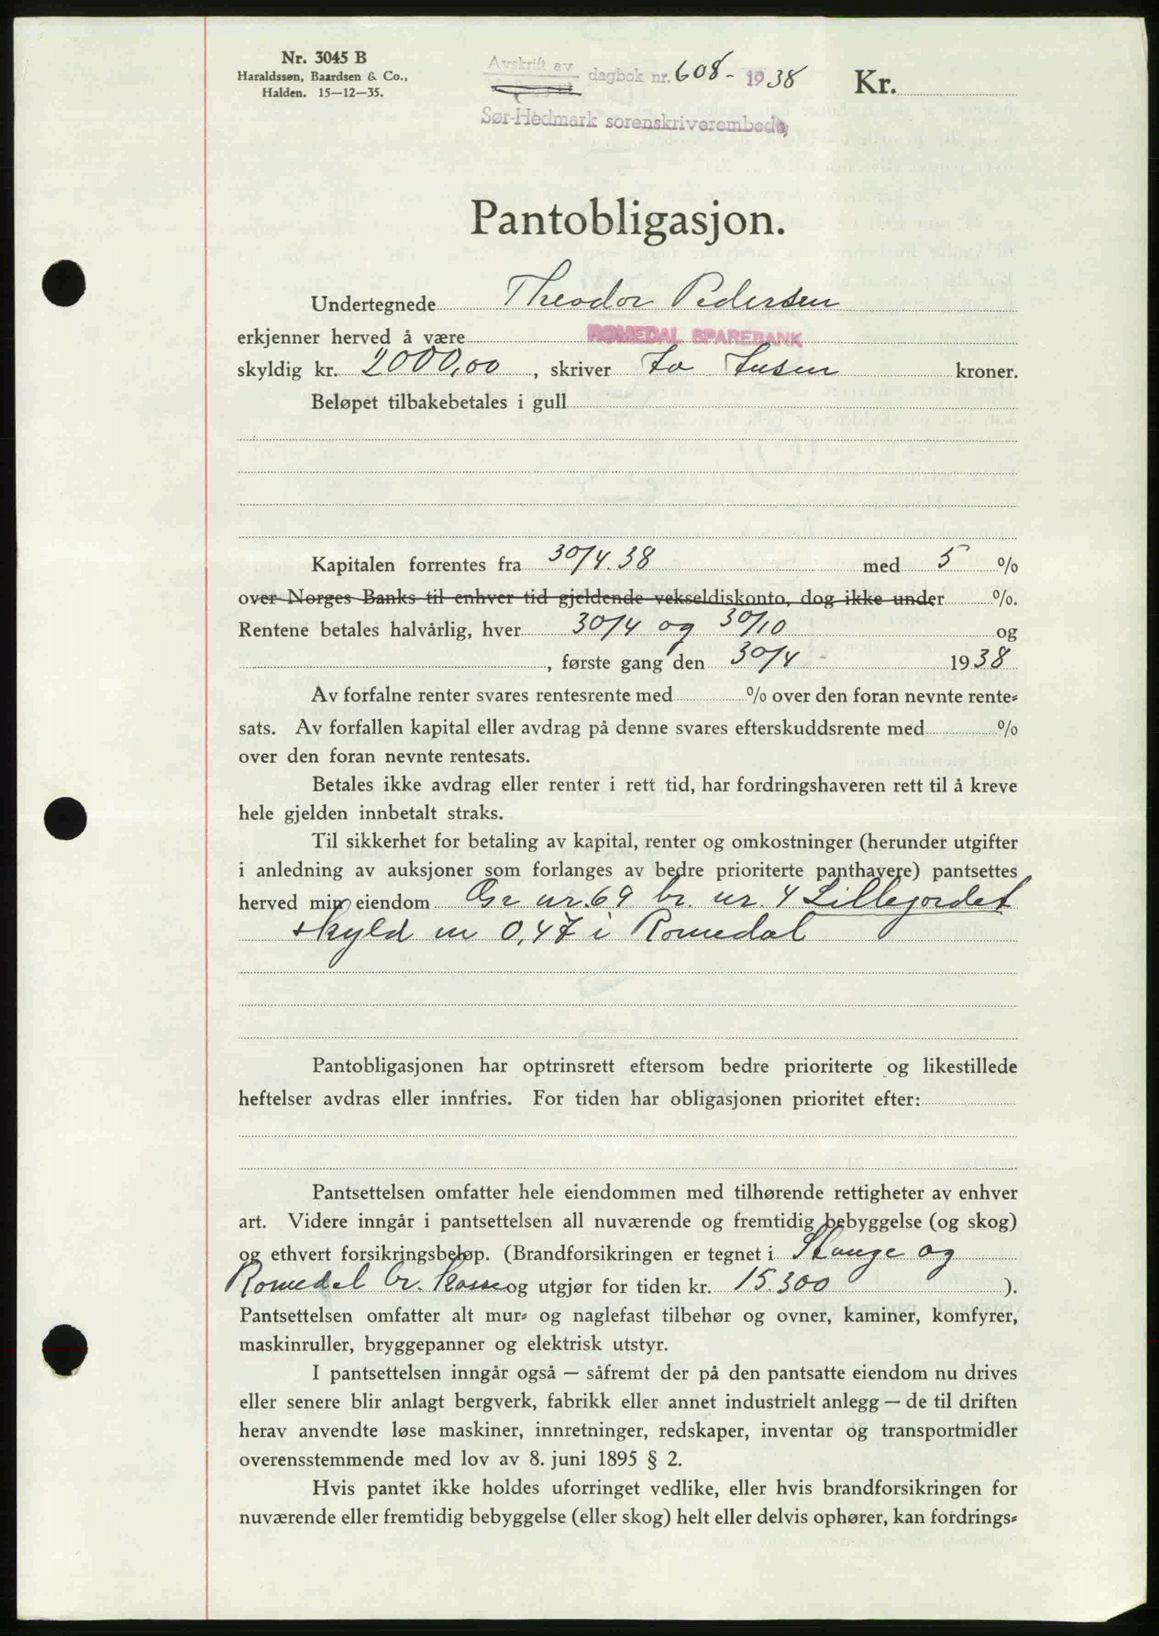 Nr. 3045 B
Haraldssøn, Baardsen & Co.,
Halden. 15—12—35.
Avskrift av
dagbok nr. 608 - 1938
Sør-Hedmark sorenskriverembede
Kr.
Pantobligasjon.
Undertegnede Theodor Pedersen
erkjenner herved å være ROMEDAL SPAREBANK
skyldig kr. 2000,00, skriver To Tusen kroner.
Beløpet tilbakebetales i gull
Kapitalen forrentes fra 30/4.38 med 5 %
over Norges Banks til enhver tid gjeldende vekseldiskonto, dog ikke under %.
Rentene betales halvårlig, hver 30/4 og 30/10 og
, første gang den 30/4 - 1938
Av forfalne renter svares rentesrente med % over den foran nevnte rente=
sats. Av forfallen kapital eller avdrag på denne svares efterskuddsrente med %
over den foran nevnte rentesats.
Betales ikke avdrag eller renter i rett tid, har fordringshaveren rett til å kreve
hele gjelden innbetalt straks.
Til sikkerhet for betaling av kapital, renter og omkostninger (herunder utgifter
i anledning av auksjoner som forlanges av bedre prioriterte panthavere) pantsettes
herved min eiendom Gr nr. 69 br. nr. 4 Lillejordet
skyld m 0,47 i Romedal
Pantobligasjonen har optrinsrett eftersom bedre prioriterte og likestillede
heftelser avdras eller innfries. For tiden har obligasjonen prioritet efter:
Pantsettelsen omfatter hele eiendommen med tilhørende rettigheter av enhver
art. Videre inngår i pantsettelsen all nuværende og fremtidig bebyggelse (og skog)
og ethvert forsikringsbeløp. (Brandforsikringen er tegnet i Stange og
Romedal br. kasse og utgjør for tiden kr. 15.300 ).
Pantsettelsen omfatter alt mur= og naglefast tilbehør og ovner, kaminer, komfyrer,
maskinruller, bryggepanner og elektrisk utstyr.
I pantsettelsen inngår også — såfremt der på den pantsatte eiendom nu drives
eller senere blir anlagt bergverk, fabrikk eller annet industrielt anlegg — de til driften
herav anvendte løse maskiner, innretninger, redskaper, inventar og transportmidler
overensstemmende med lov av 8. juni 1895 § 2.
Hvis pantet ikke holdes uforringet vedlike, eller hvis brandforsikringen for
nuværende eller fremtidig bebyggelse (eller skog) helt eller delvis ophører, kan fordrings=